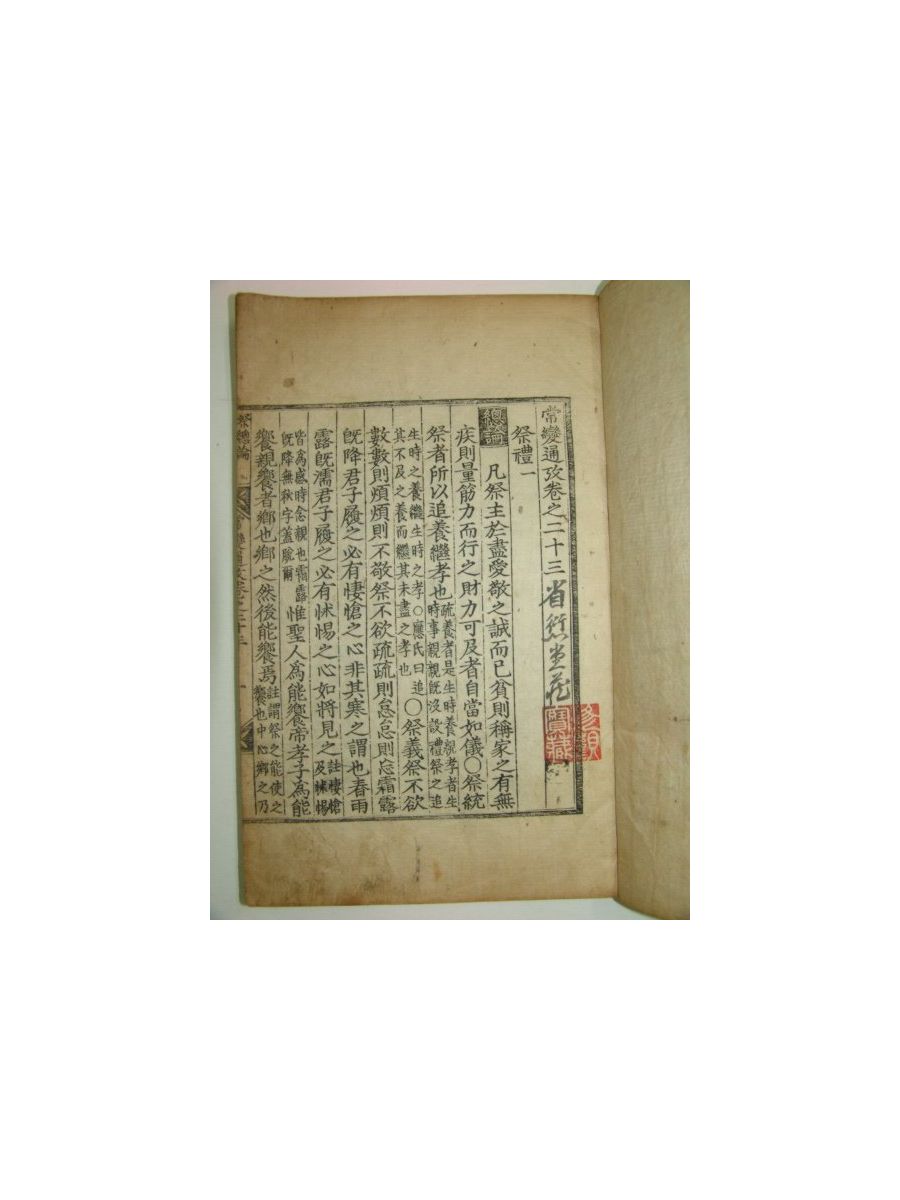 常變通攷卷之二十三 省愆堂藏
寶藏
祭禮一
總論 凡祭主於盡愛敬之誠而已貧則稱家之有無
疾則量筋力而行之財力可及者自當如儀〇祭統
祭者所以追養繼孝也疏養者是生時養親孝者生
時事親親旣沒設禮祭之追
生時之養繼生時之孝〇應氏曰追
其不及之養而繼其未盡之孝也〇祭義祭不欲
數數則煩煩則不敬祭不欲疏疏則怠怠則忘霜露
旣降君子履之必有悽愴之心非其寒之謂也春雨
露旣濡君子履之必有怵惕之心如將見之註悽愴
及怵惕
皆爲感時念親也霜露
旣降無秋字蓋脫爾惟聖人爲能饗帝孝子爲能
饗親饗者鄕也鄕之然後能饗焉註謂祭之能使之
饗也中心鄕之乃
祭總論
常變通攷卷之二十三